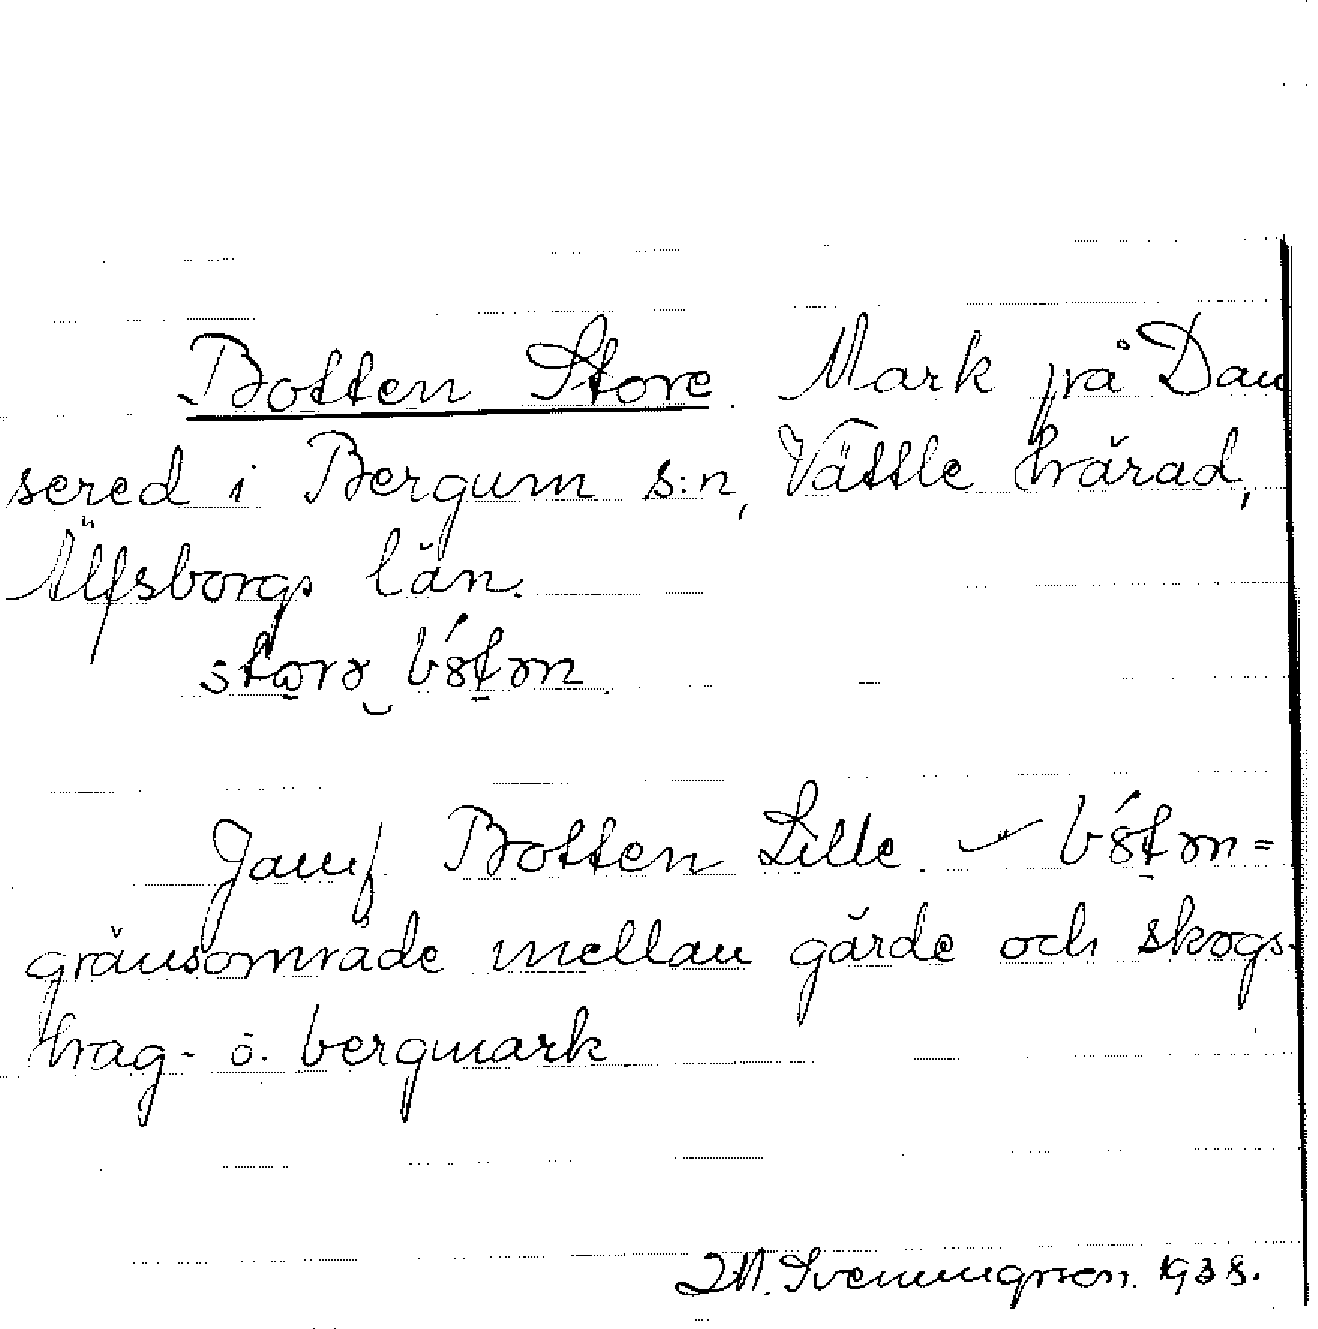 Botten Store. Mark på Dan
sered i Bergum s:n, Vättle härad,
Älfsborgs län.
storə bót​ən.
Jämf Botten Lille. – bótən =
gränsområde mellan gärde och skogs-
hag- o. bergmark
M. Svenungsson. 1938.